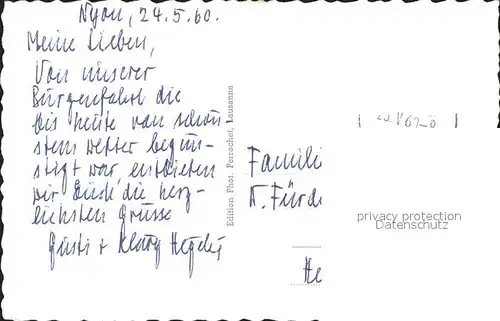 Nyon, 24.5.60.
Meine Lieben,
Von unserer
Burgenfahrt die
bis heute von schön-
stem Wetter begün-
stigt war, entbieten
wir Euch die herz-
lichsten Grüsse
Gusti + Klärg
Edition Phot. Perrochet, Lausanne
Famili
Fürd
He
privacy protection
Datenschutz